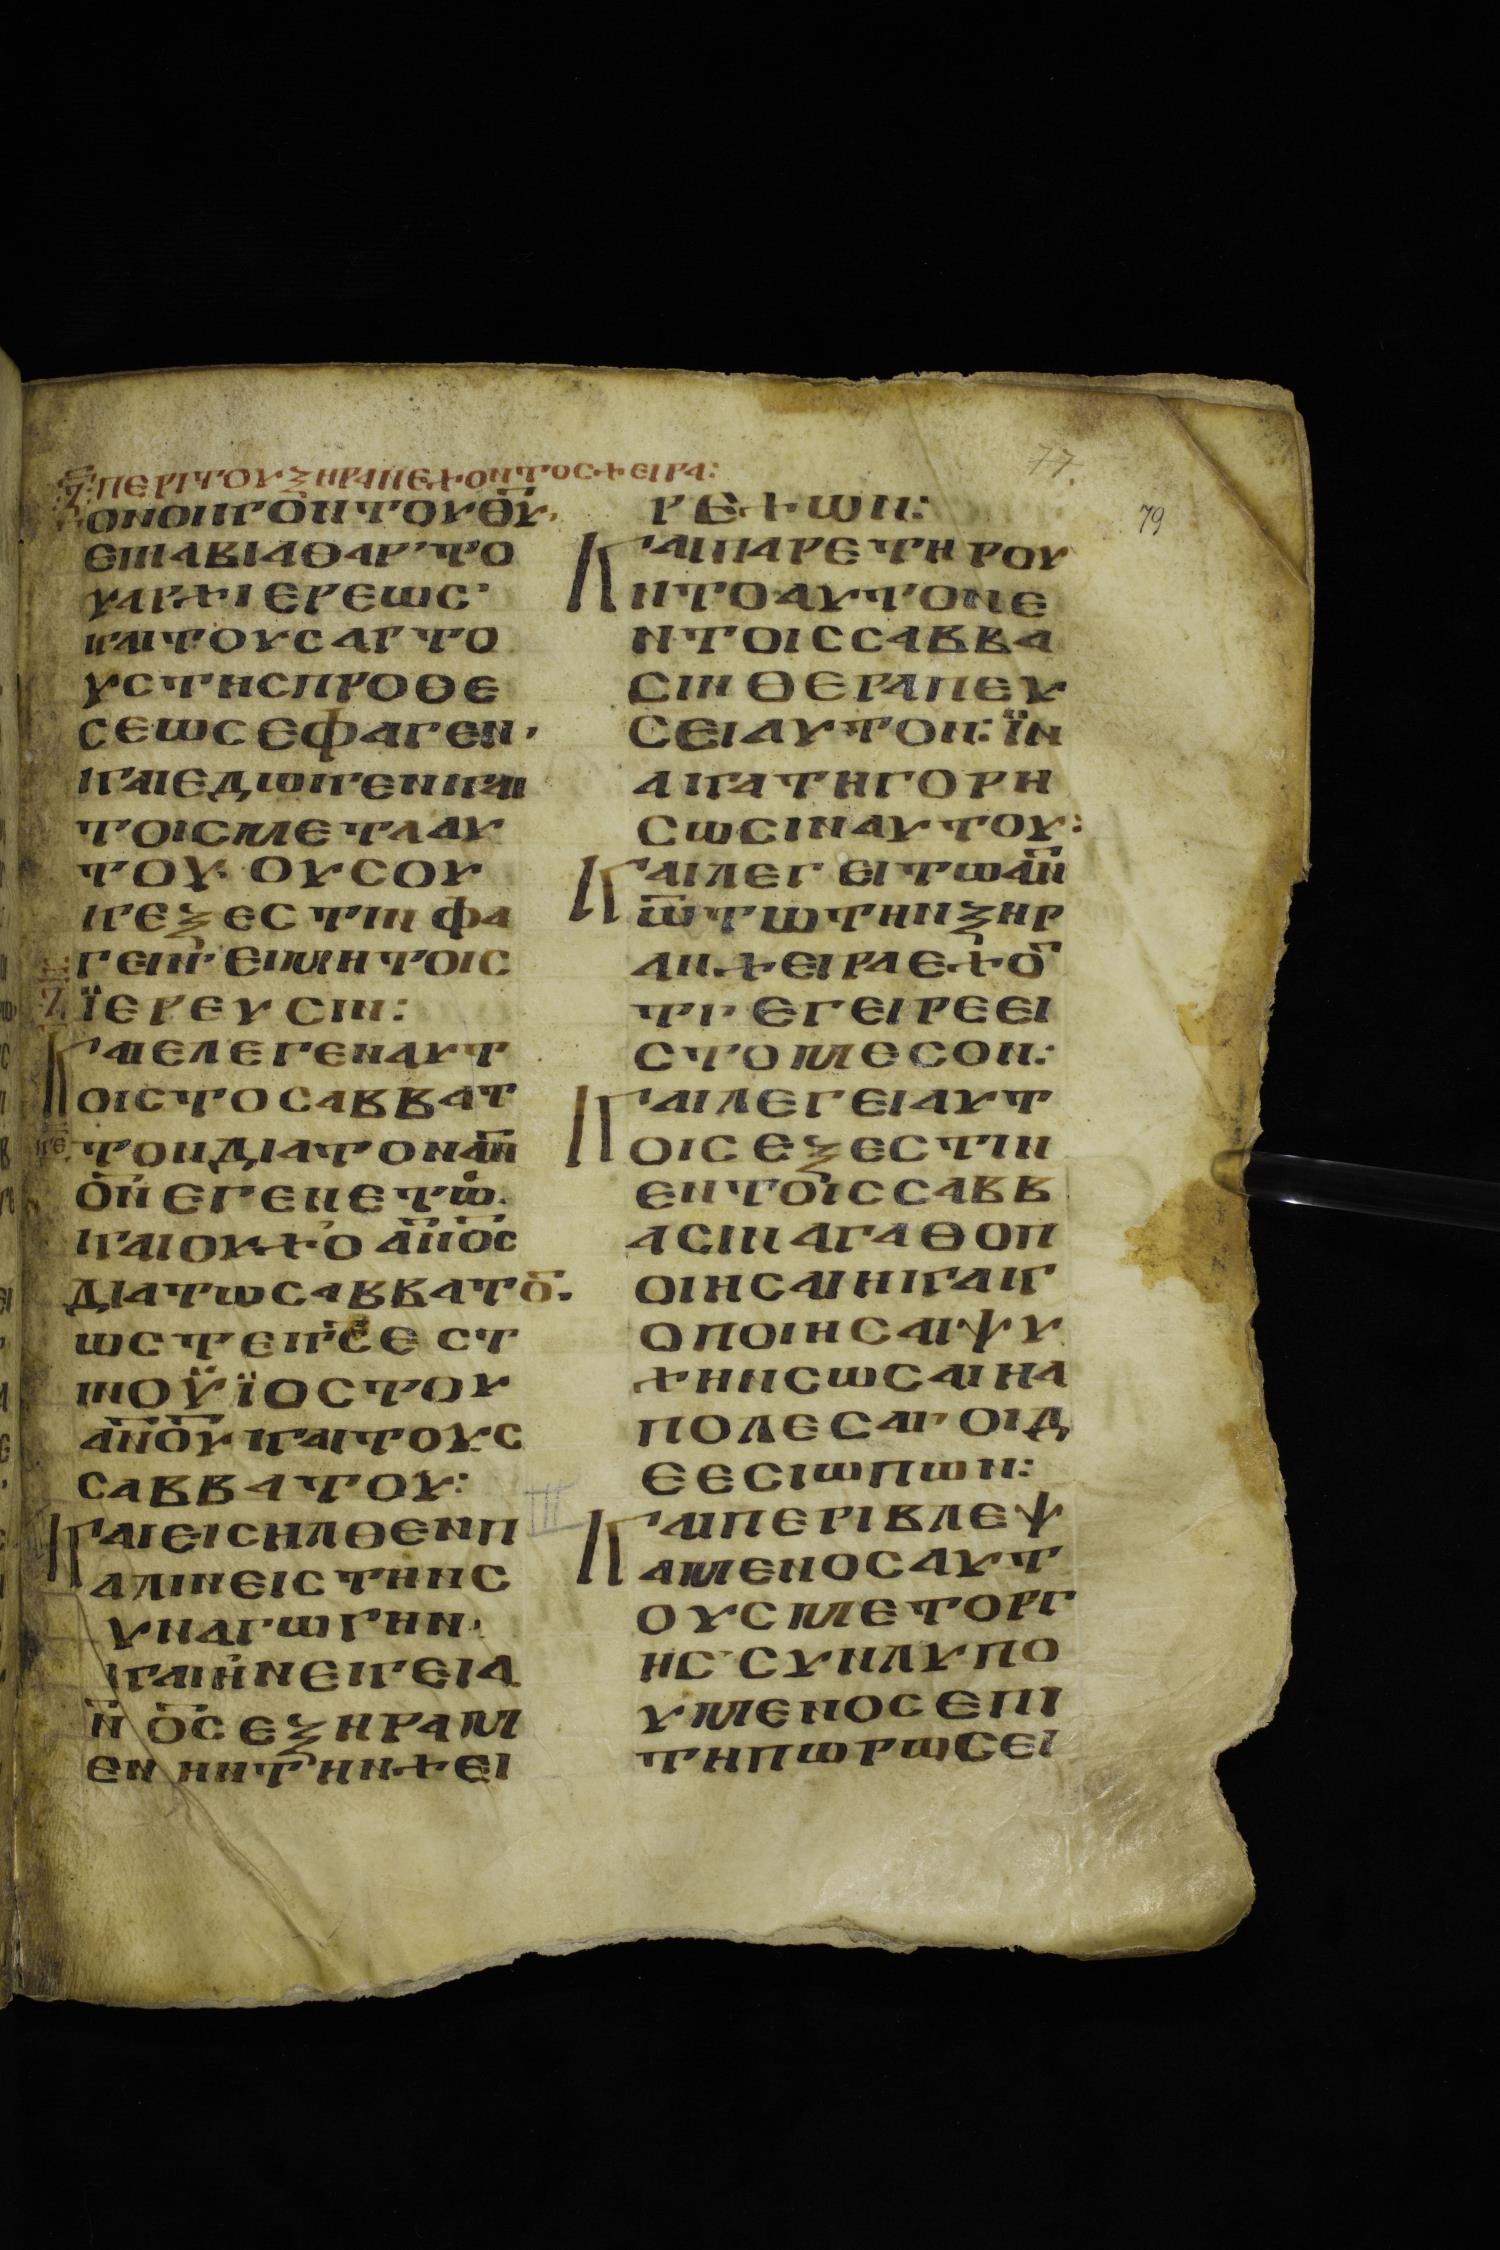 ζ ΠΕΡΙΤΟΥΞΗΡΑΝΕΧΟΝΤΟΣΧΕΙΡΑ:
77.
79
ΟΝΟΙΚΟΝΤΟΥΘΥ.
ΕΠΙΑΒΙΑΘΑΡ·ΤΟ
ΥΑΡΧΙΕΡΕΩΣ·
ΚΑΙΤΟΥΣΑΡΤΟ
ΥΣΤΗΣΠΡΟΘΕ
ΣΕΩΣΕΦΑΓΕΝ·
ΚΑΙΕΔΩΚΕΝΚΑΙ
ΤΟΙΣΜΕΤΑΑΥ
ΤΟΥ· ΟΥΣΟΥ
ΚΕΞΕΣΤΙΝΦΑ
ΓΕΙΝ·ΕΙΜΗΤΟΙΣ
ΪΕΡΕΥΣΙΝ:
ΚΑΙΕΛΕΓΕΝΑΥΤ
ΟΙΣΤΟΣΑΒΒΑΤ
ΤΟΝΔΙΑΤΟΝΑΝ
ΟΝΕΓΕΝΕΤΩ.
ΚΑΙΟΥΧΟΑΝΟΣ
ΔΙΑΤΩΣΑΒΒΑΤΟ.
ΩΣΤΕΚΣΕΣΤ
ΙΝΟΫΪΟΣΤΟΥ
ΑΝΟΥΚΑΙΤΟΥΣ
ΣΑΒΒΑΤΟΥ:
ΚΑΙΕΙΣΗΛΘΕΝΠ
ΑΛΙΝΕΙΣΤΗΝΣ
ΥΝΑΓΩΓΗΝ·
ΚΑΙΗΝΕΚΕΙΑ
Ν ΟΣΕΞΗΡΑΜ
ΕΝΗΝΤΗΝΧΕΙ
ΡΕΧΩΝ:
ΚΑΙΠΑΡΕΤΗΡΟΥ
ΝΤΟΑΥΤΟΝΕ
ΝΤΟΙΣΣΑΒΒΑ
ΣΙΝΘΕΡΑΠΕΥ
ΣΕΙΑΥΤΟΝ:ΪΝ
ΑΚΑΤΗΓΟΡΗ
ΣΩΣΙΝΑΥΤΟΥ:
ΚΑΙΛΕΓΕΙΤΩΑΝ
ΩΤΩΤΗΝΞΗΡ
ΑΝΧΕΙΡΑΕΧΟ
ΤΙ·ΕΓΕΙΡΕΕΙ
ΣΤΟΜΕΣΟΝ:
ΚΑΙΛΕΓΕΙΑΥΤ
ΟΙΣΕΞΕΣΤΙΝ
ΕΝΤΟΙΣΣΑΒΒ
ΑΣΙΝΑΓΑΘΟΠ
ΟΙΗΣΑΙΗΚΑΚ
ΟΠΟΙΗΣΑΙ·ΨΥ
ΧΗΝΣΩΣΑΙΗΑ
ΠΟΛΕΣΑΙ·ΟΙΔ
ΕΕΣΙΩΠΩΝ:
ΚΑΙΠΕΡΙΒΛΕΨ
ΑΜΕΝΟΣΑΥΤ
ΟΥΣΜΕΤΟΡΓ
ΗΣ·ΣΥΝΛΥΠΟ
ΥΜΕΝΟΣΕΠΙ
ΤΗΠΩΡΩΣΕΙ